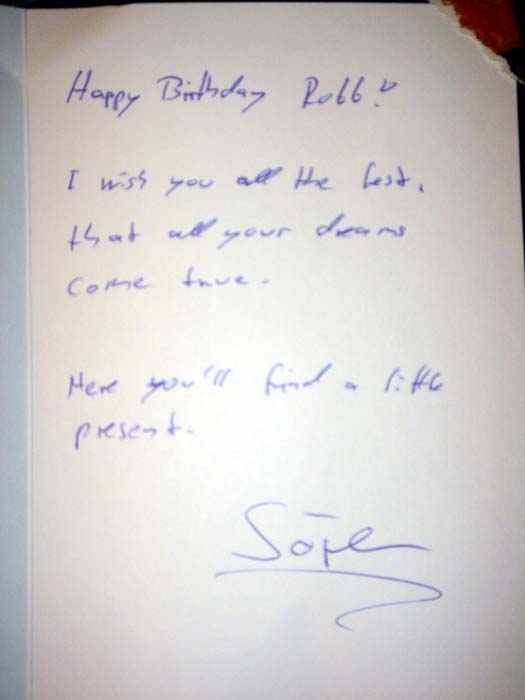 Happy Birthday Robb!
I wish you all the best,
that all your dreams
come true.
Here you'll find a little
present.
Sören